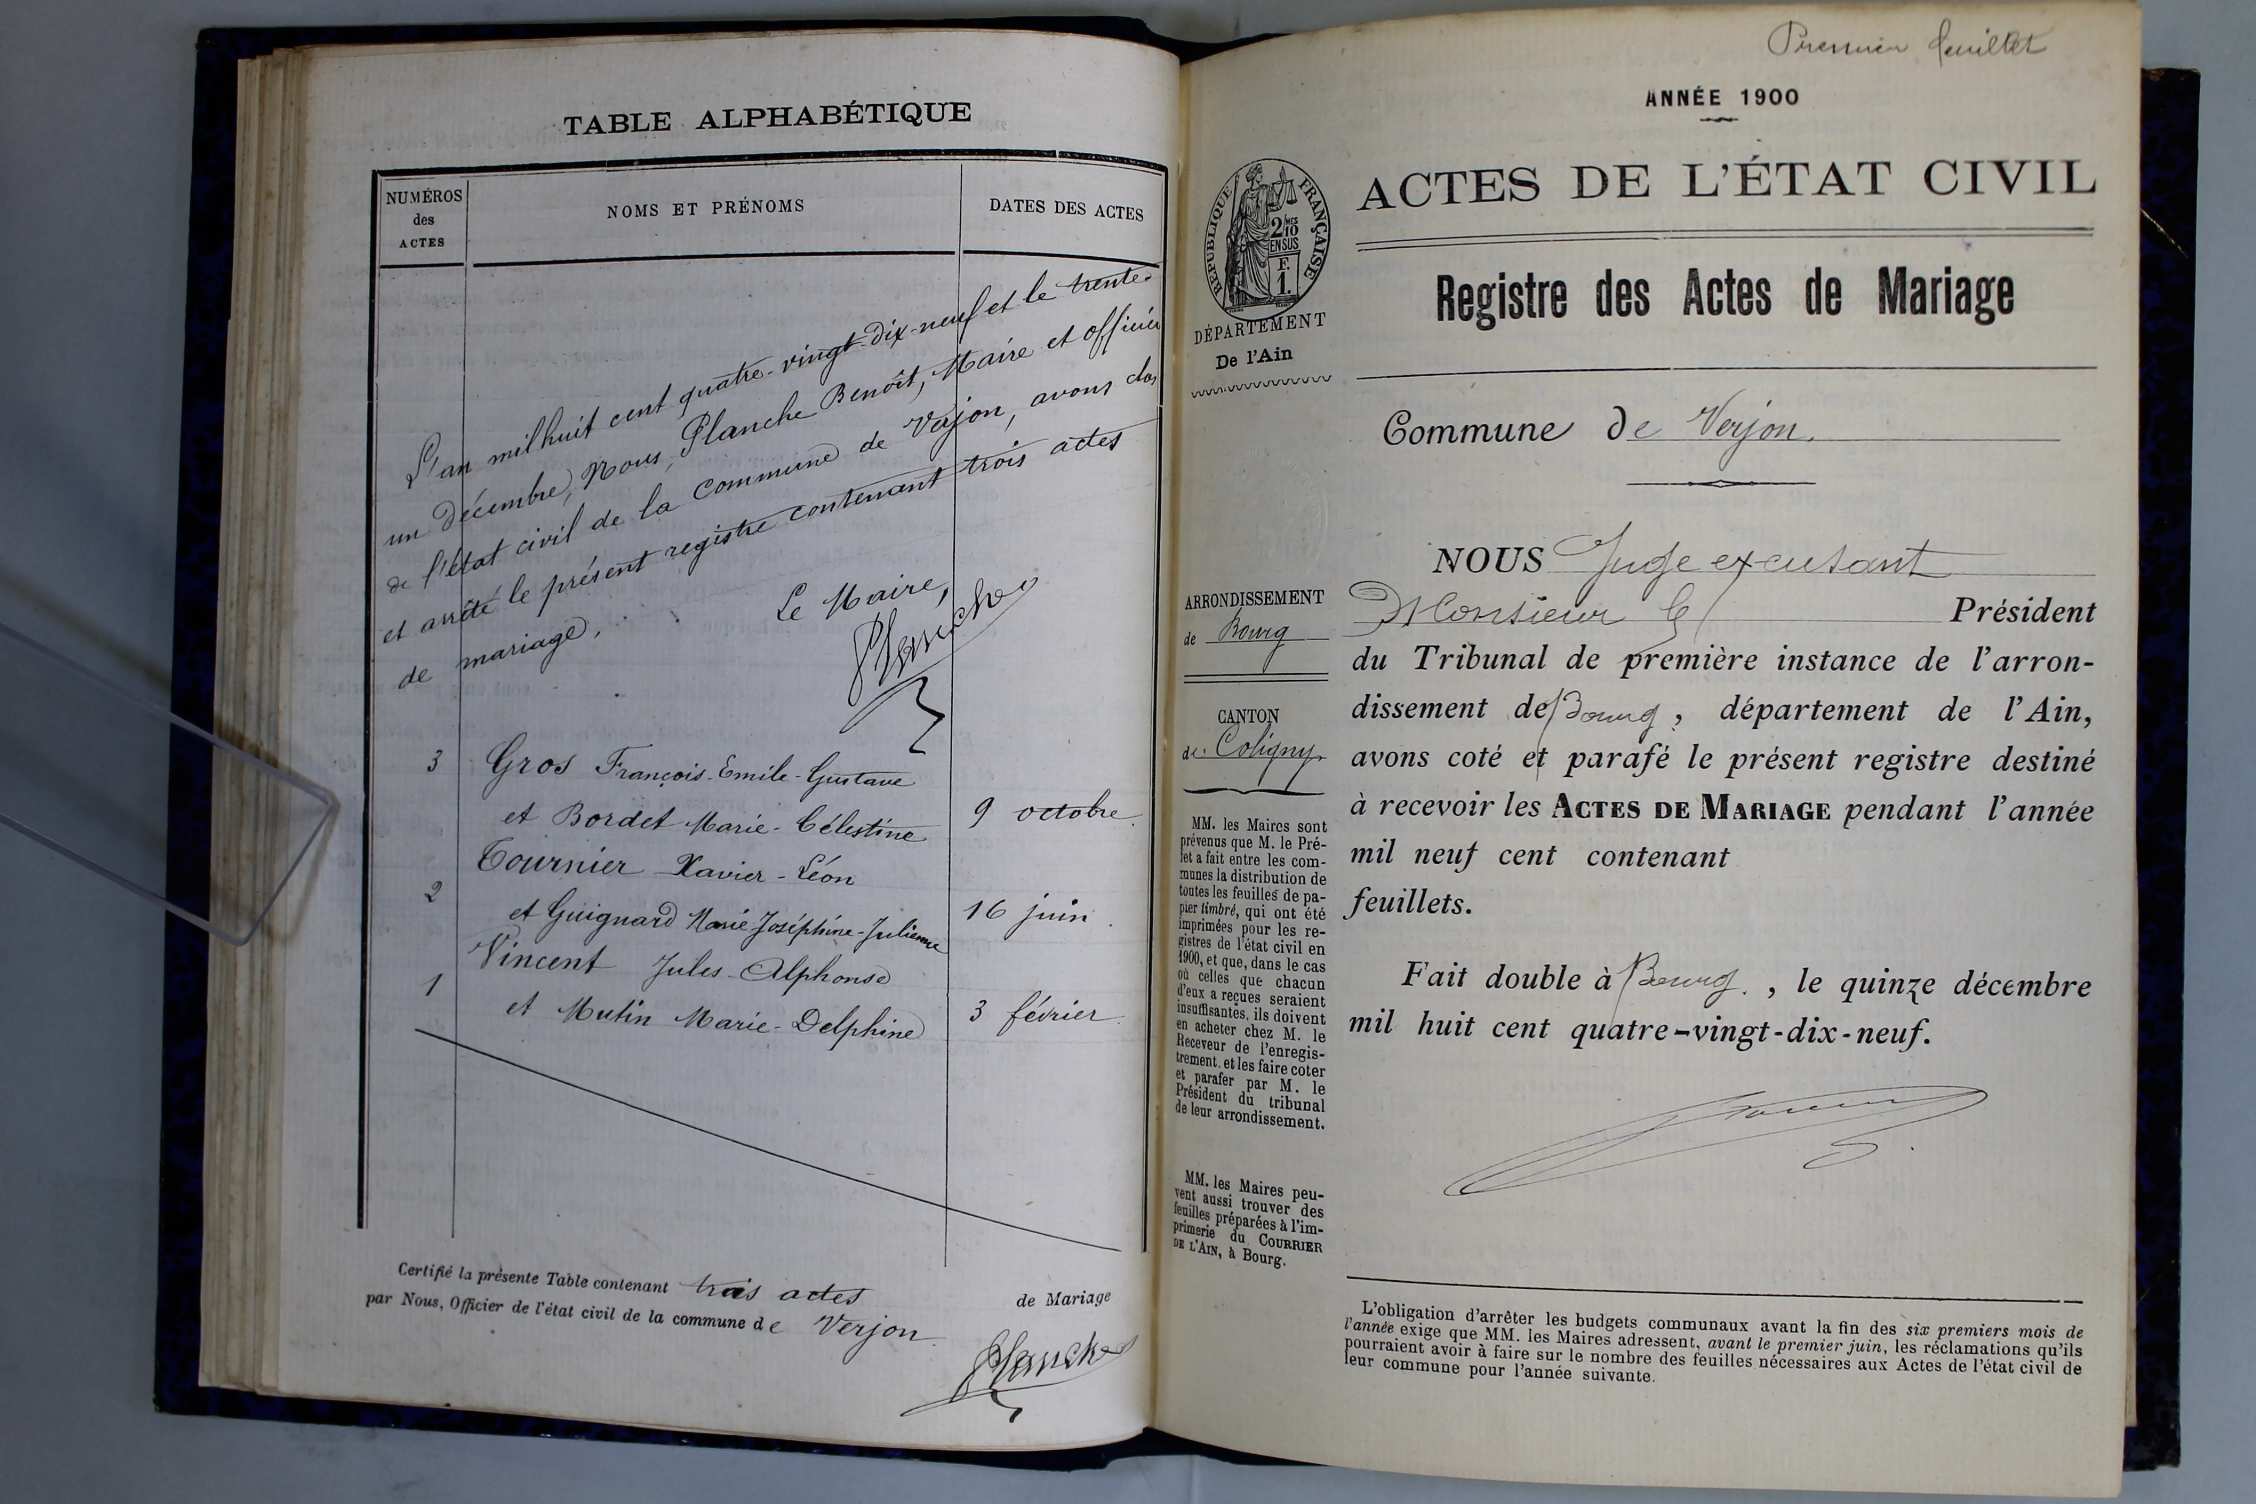 TABLE ALPHABÉTIQUE
NUMÉROS
des
ACTES
NOMS ET PRÉNOMS
DATES DES ACTES
L'an mil huit cent quatre-vingt-dix-neuf et le trente-
un décembre, Nous, Planche Benoît, Maire et officier
de l'état civil de la commune de Verjon, avons clos
et arrêté le présent registre contenant trois actes
de mariage.
Le Maire,
Planche
3 Gros François-Emile-Gustave
et Bordet Marie-Célestine 9 octobre.
Tournier Xavier-Léon
2 et Guignard Marie Joséphine-Julienne 16 juin.
Vincent Jules-Alphonse
1 et Mutin Marie-Delphine 3 février.
Certifié la présente Table contenant trois actes de Mariage
par Nous, Officier de l'état civil de la commune de Verjon.
Planche
Premier feuillet
ANNÉE 1900
RÉPUBLIQUE FRANÇAISE
2/10MES
EN SUS
F.
1.
DÉPARTEMENT
De l'Ain
ACTES DE L'ÉTAT CIVIL
Registre des Actes de Mariage
Commune de Verjon.
ARRONDISSEMENT
de Bourg
CANTON
de Coligny.
MM. les Maires sont
prévenus que M. le Pré-
fet a fait entre les com-
munes la distribution de
toutes les feuilles de pa-
pier timbré, qui ont été
imprimées pour les re-
gistres de l'état civil en
1900, et que, dans le cas
où celles que chacun
d'eux a reçues seraient
insuffisantes, ils doivent
en acheter chez M. le
Receveur de l'enregis-
trement, et les faire coter
et parafer par M. le
Président du tribunal
de leur arrondissement.
MM. les Maires peu-
vent aussi trouver des
feuilles préparées à l'im-
primerie du COURRIER
DE L'AIN, à Bourg.
NOUS Juge excusant
Monsieur le Président
du Tribunal de première instance de l'arron-
dissement de Bourg, département de l'Ain,
avons coté et parafé le présent registre destiné
à recevoir les ACTES DE MARIAGE pendant l'année
mil neuf cent contenant
feuillets.
Fait double à Bourg., le quinze décembre
mil huit cent quatre-vingt-dix-neuf.
L'obligation d'arrêter les budgets communaux avant la fin des six premiers mois de
l'année exige que MM. les Maires adressent, avant le premier juin, les réclamations qu'ils
pourraient avoir à faire sur le nombre des feuilles nécessaires aux Actes de l'état civil de
leur commune pour l'année suivante.